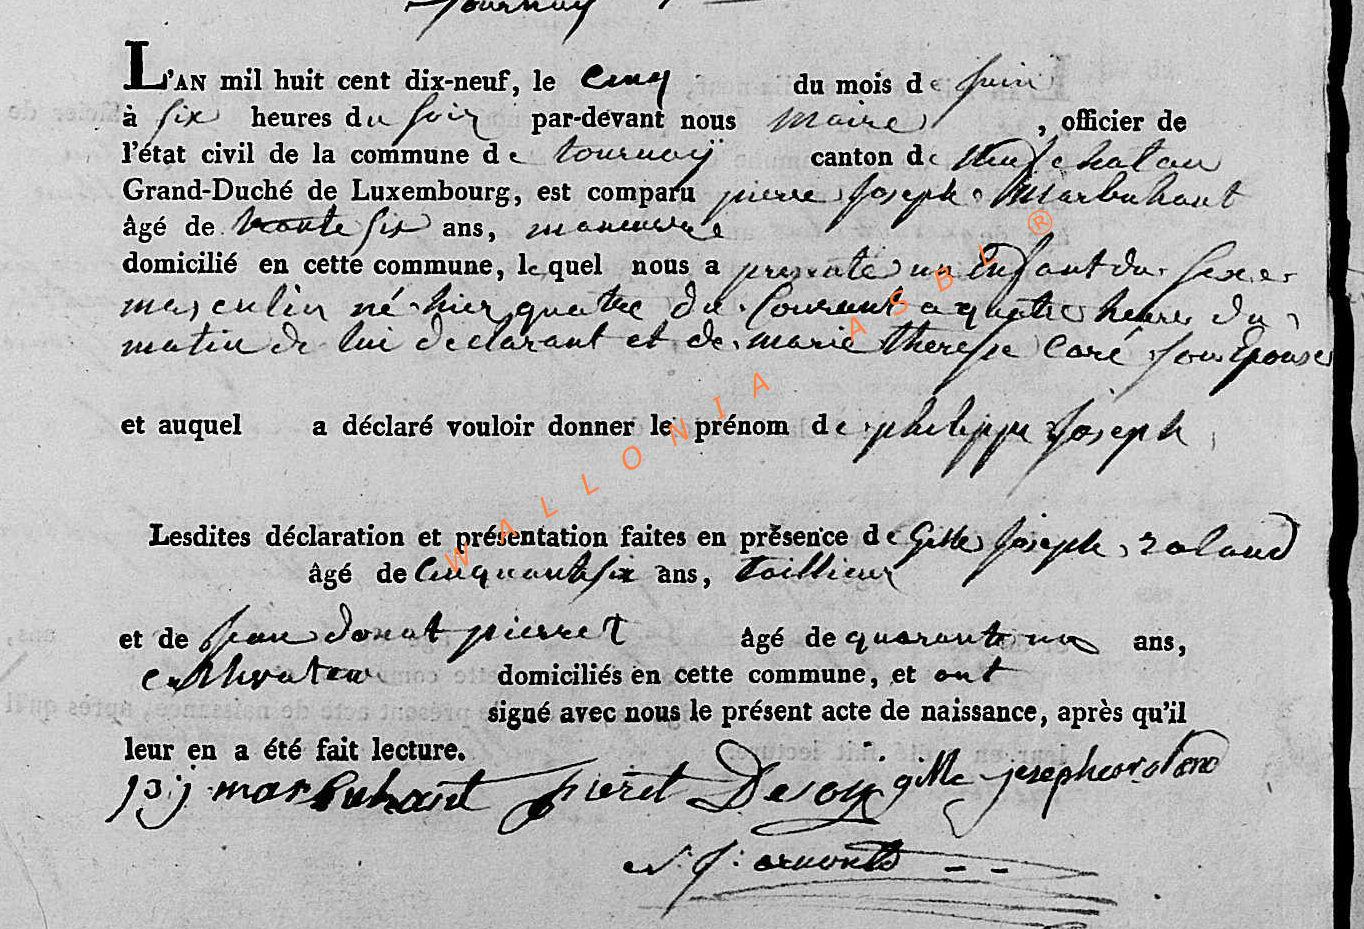 tournay
L'AN mil huit cent dix-neuf, le cinq du mois de juin
à six heures du soir par-devant nous maire , officier de
l'état civil de la commune de tournay canton de Neufchateau
Grand-Duché de Luxembourg, est comparu pierre joseph Marbuhant
âgé de trente six ans, maneuvre
domicilié en cette commune, lequel nous a presenté un Enfant du sexe
masculin né hier quatre du Courant a quatre heures du
matin de lui declarant et de marie therese Caré son Epouse
et auquel a déclaré vouloir donner le prénom de philippe joseph
Lesdites déclaration et présentation faites en présence de Gille joseph roland
âgé de Cinquante six ans, taillieur
et de jean donat pierret âgé de quarante un ans,
cultivateur domiciliés en cette commune, et ont
signé avec nous le présent acte de naissance, après qu'il
leur en a été fait lecture.
p j marbuhant pieret Desoy gille joseph roland
WALLONIA ASBL ®